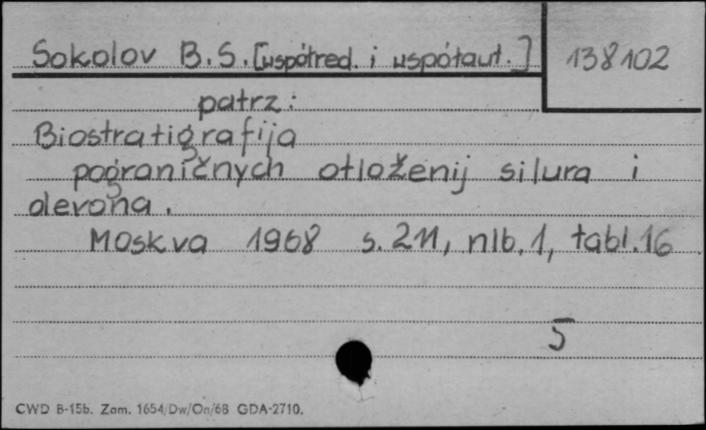 Sokolov B.S. [współred. i współaut.] 138102
patrz:
Biostratigrafija
pograničnych otloženij silura i
devona.
Moskva 1968 s. 211, nlb. 1, tabl. 16
5
CWD B-15b. Zam. 1654/Dw/On/68 GDA-2710.